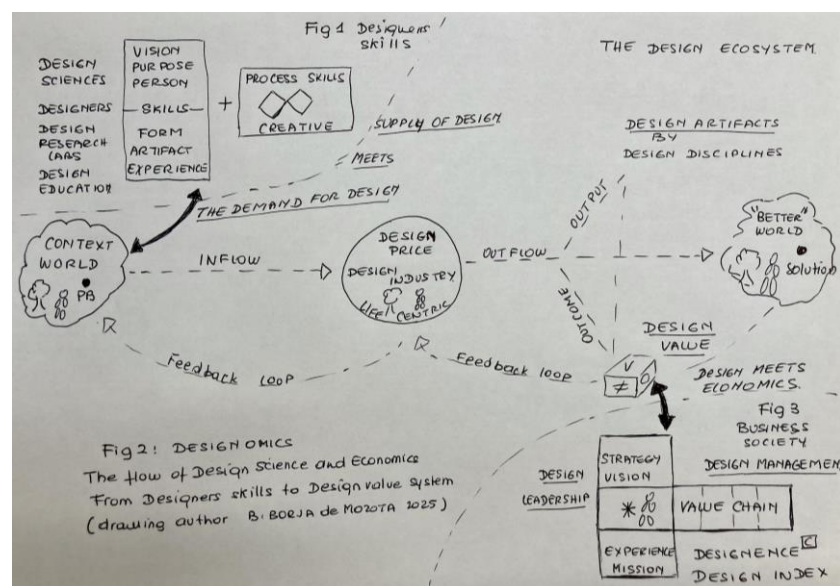 Fig 1 Designers'
Skills
THE DESIGN ECOSYSTEM
DESIGN
SCIENCES
DESIGNERS
DESIGN
RESEARCH
LABS
DESIGN
EDUCATION
VISION
PURPOSE
PERSON
SKILLS
FORM
ARTIFACT
EXPERIENCE
+
PROCESS SKILLS
CREATIVE
SUPPLY OF DESIGN
MEETS
THE DEMAND FOR DESIGN
DESIGN ARTIFACTS
BY
DESIGN DISCIPLINES
CONTEXT
WORLD
PB
INFLOW
DESIGN
PRICE
DESIGN
INDUSTRY
LIFE
CENTRIC
OUTFLOW
OUTPUT
OUTCOME
"BETTER"
WORLD
Solution
Feedback LOOP
Feedback loop
DESIGN
VALUE
V
≠
O
DESIGN MEETS
ECONOMICS.
Fig 2: DESIGNOMICS
The flow of Design Science and Economics
From Designers skills to Design value system
(drawing author B. BORJA de MOZOTA 2025)
Fig 3
BUSINESS
SOCIETY
DESIGN MANAGEMENT
DESIGN
LEADERSHIP
STRATEGY
VISION
VALUE CHAIN
EXPERIENCE
MISSION
DESIGNENCE C
DESIGN INDEX